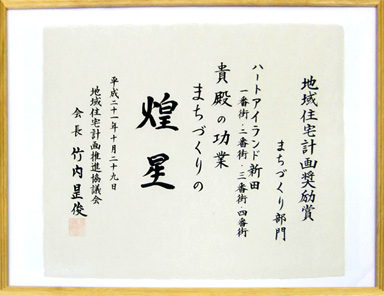 地域住宅計画奨励賞
まちづくり部門
ハートアイランド新田
一番街・二番街・三番街・四番街
貴殿の功業
まちづくりの
煌星
平成二十一年十月二十九日
地域住宅計画推進協議会
会長 竹内